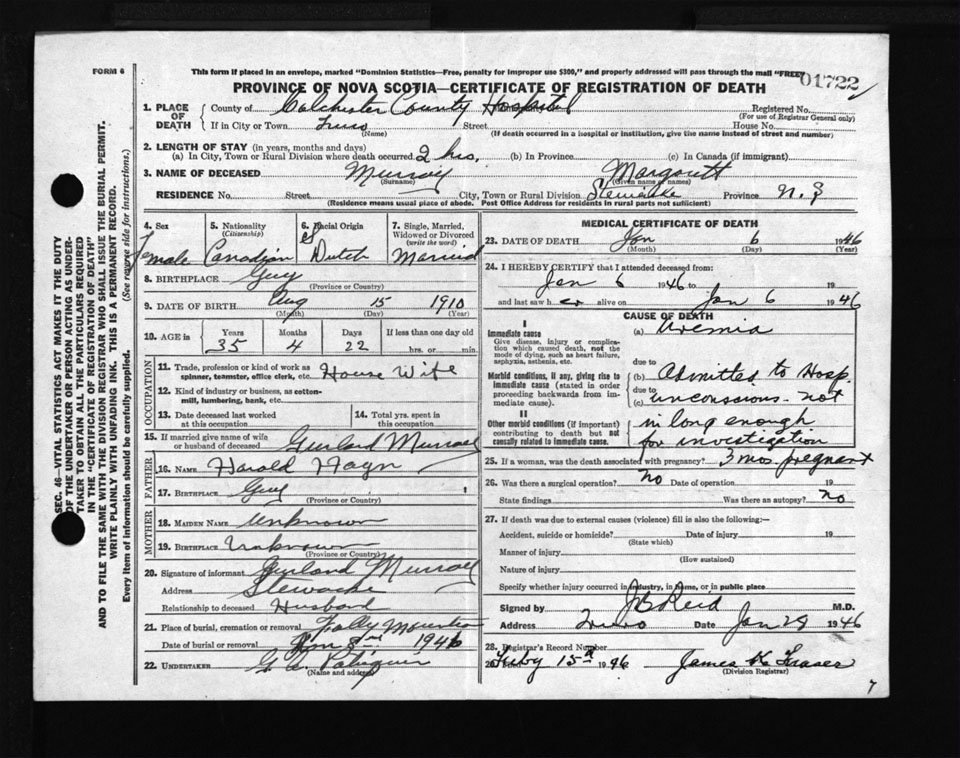 FORM 6
This form if placed in an envelope, marked "Dominion Statistics—Free, penalty for improper use $300," and properly addressed will pass through the mail "FREE"
01722
PROVINCE OF NOVA SCOTIA—CERTIFICATE OF REGISTRATION OF DEATH
1. PLACE OF DEATH
County of Colchester County Hospital
Registered No.
(For use of Registrar General only)
If in City or Town Truro Street House No.
(Name) (If death occurred in a hospital or institution, give the name instead of street and number)
2. LENGTH OF STAY (in years, months and days)
(a) In City, Town or Rural Division where death occurred 2 hrs. (b) In Province (c) In Canada (if immigrant)
3. NAME OF DECEASED Murray Margarett
(Surname) (Given name or names)
RESIDENCE No. Street City, Town or Rural Division Stewiacke Province N.S
(Residence means usual place of abode. Post Office Address for residents in rural parts not sufficient)
4. Sex
Female
5. Nationality
(Citizenship)
Canadian
6. Racial Origin
Dutch
7. Single, Married, Widowed or Divorced
(write the word)
Married
8. BIRTHPLACE Guy
(Province or Country)
9. DATE OF BIRTH Aug 15 1910
(Month) (Day) (Year)
10. AGE in
Years Months Days If less than one day old
35 4 22 hrs. or min.
OCCUPATION
11. Trade, profession or kind of work as spinner, teamster, office clerk, etc. House Wife
12. Kind of industry or business, as cotton-mill, lumbering, bank, etc.
13. Date deceased last worked at this occupation
14. Total yrs. spent in this occupation
15. If married give name of wife or husband of deceased Garland Murray
FATHER
16. NAME Harold
17. BIRTHPLACE Guy
(Province or Country)
MOTHER
18. MAIDEN NAME Unknown
19. BIRTHPLACE Unknown
(Province or Country)
20. Signature of informant Garland Murray
Address Stewiacke
Relationship to deceased Husband
21. Place of burial, cremation or removal Folly Mountain
Date of burial or removal 1946
22. UNDERTAKER
(Name and address)
MEDICAL CERTIFICATE OF DEATH
23. DATE OF DEATH Jan 6 1946
(Month) (Day) (Year)
24. I HEREBY CERTIFY that I attended deceased from:
Jan 6 1946 to 19
and last saw her alive on Jan 6 1946
CAUSE OF DEATH
I
Immediate cause
Give disease, injury or complication which caused death, not the mode of dying, such as heart failure, asphyxia, asthenia, etc.
(a) Uremia
due to
Morbid conditions, if any, giving rise to immediate cause (stated in order proceeding backwards from immediate cause).
(b) Admitted to Hosp.
due to
(c) unconscious - not
II
Other morbid conditions (if important) contributing to death but not causally related to immediate cause.
in long enough
for investigation
25. If a woman, was the death associated with pregnancy? 3 mos. pregnant
26. Was there a surgical operation? no Date of operation 19
State findings Was there an autopsy? no
27. If death was due to external causes (violence) fill in also the following:—
Accident, suicide or homicide? Date of injury 19
(State which)
Manner of injury
(How sustained)
Nature of injury
Specify whether injury occurred in industry, in home, or in public place
Signed by J B Reid M.D.
Address Truro Date Jan 29 1946
28. Registrar's Record Number
29. Feby 15 1946 James K Fraser
(Division Registrar)
7
SEC. 46—VITAL STATISTICS ACT MAKES IT THE DUTY
OF THE UNDERTAKER OR PERSON ACTING AS UNDER-
TAKER TO OBTAIN ALL THE PARTICULARS REQUIRED
IN THE "CERTIFICATE OF REGISTRATION OF DEATH"
AND TO FILE THE SAME WITH THE DIVISION REGISTRAR WHO SHALL ISSUE THE BURIAL PERMIT.
WRITE PLAINLY WITH UNFADING INK. THIS IS A PERMANENT RECORD.
Every item of information should be carefully supplied. (See reverse side for instructions.)